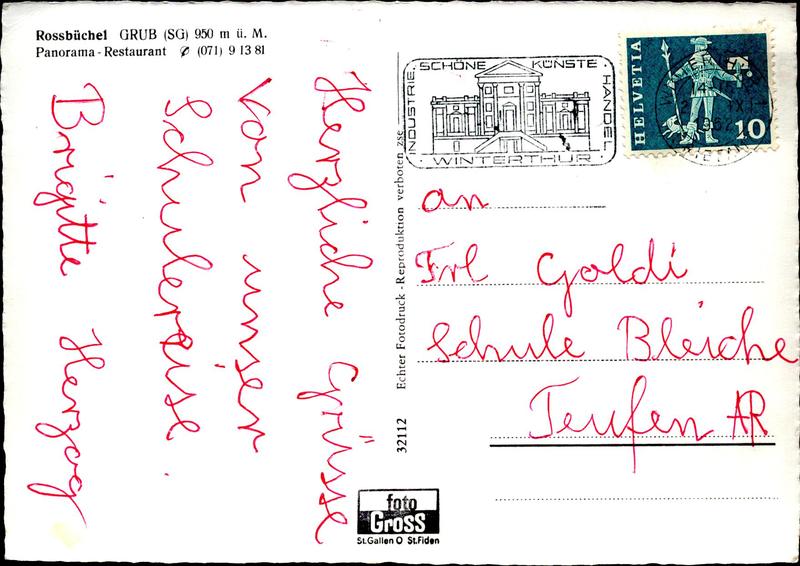 Rossbüchel GRUB (SG) 950 m ü. M.
Panorama-Restaurant ✆ (071) 9 13 81
Herzliche Grüsse
von unser
Schulereise.
Brigitte Herzog
32112 Echter Fotodruck - Reproduktion verboten zse
INDUSTRIE. SCHÖNE KÜNSTE HANDEL
WINTERTHUR
HELVETIA
10
1962
an
Frl Goldi
Schule Bleiche
Teufen AR
foto
Gross
St.Gallen O St.Fiden